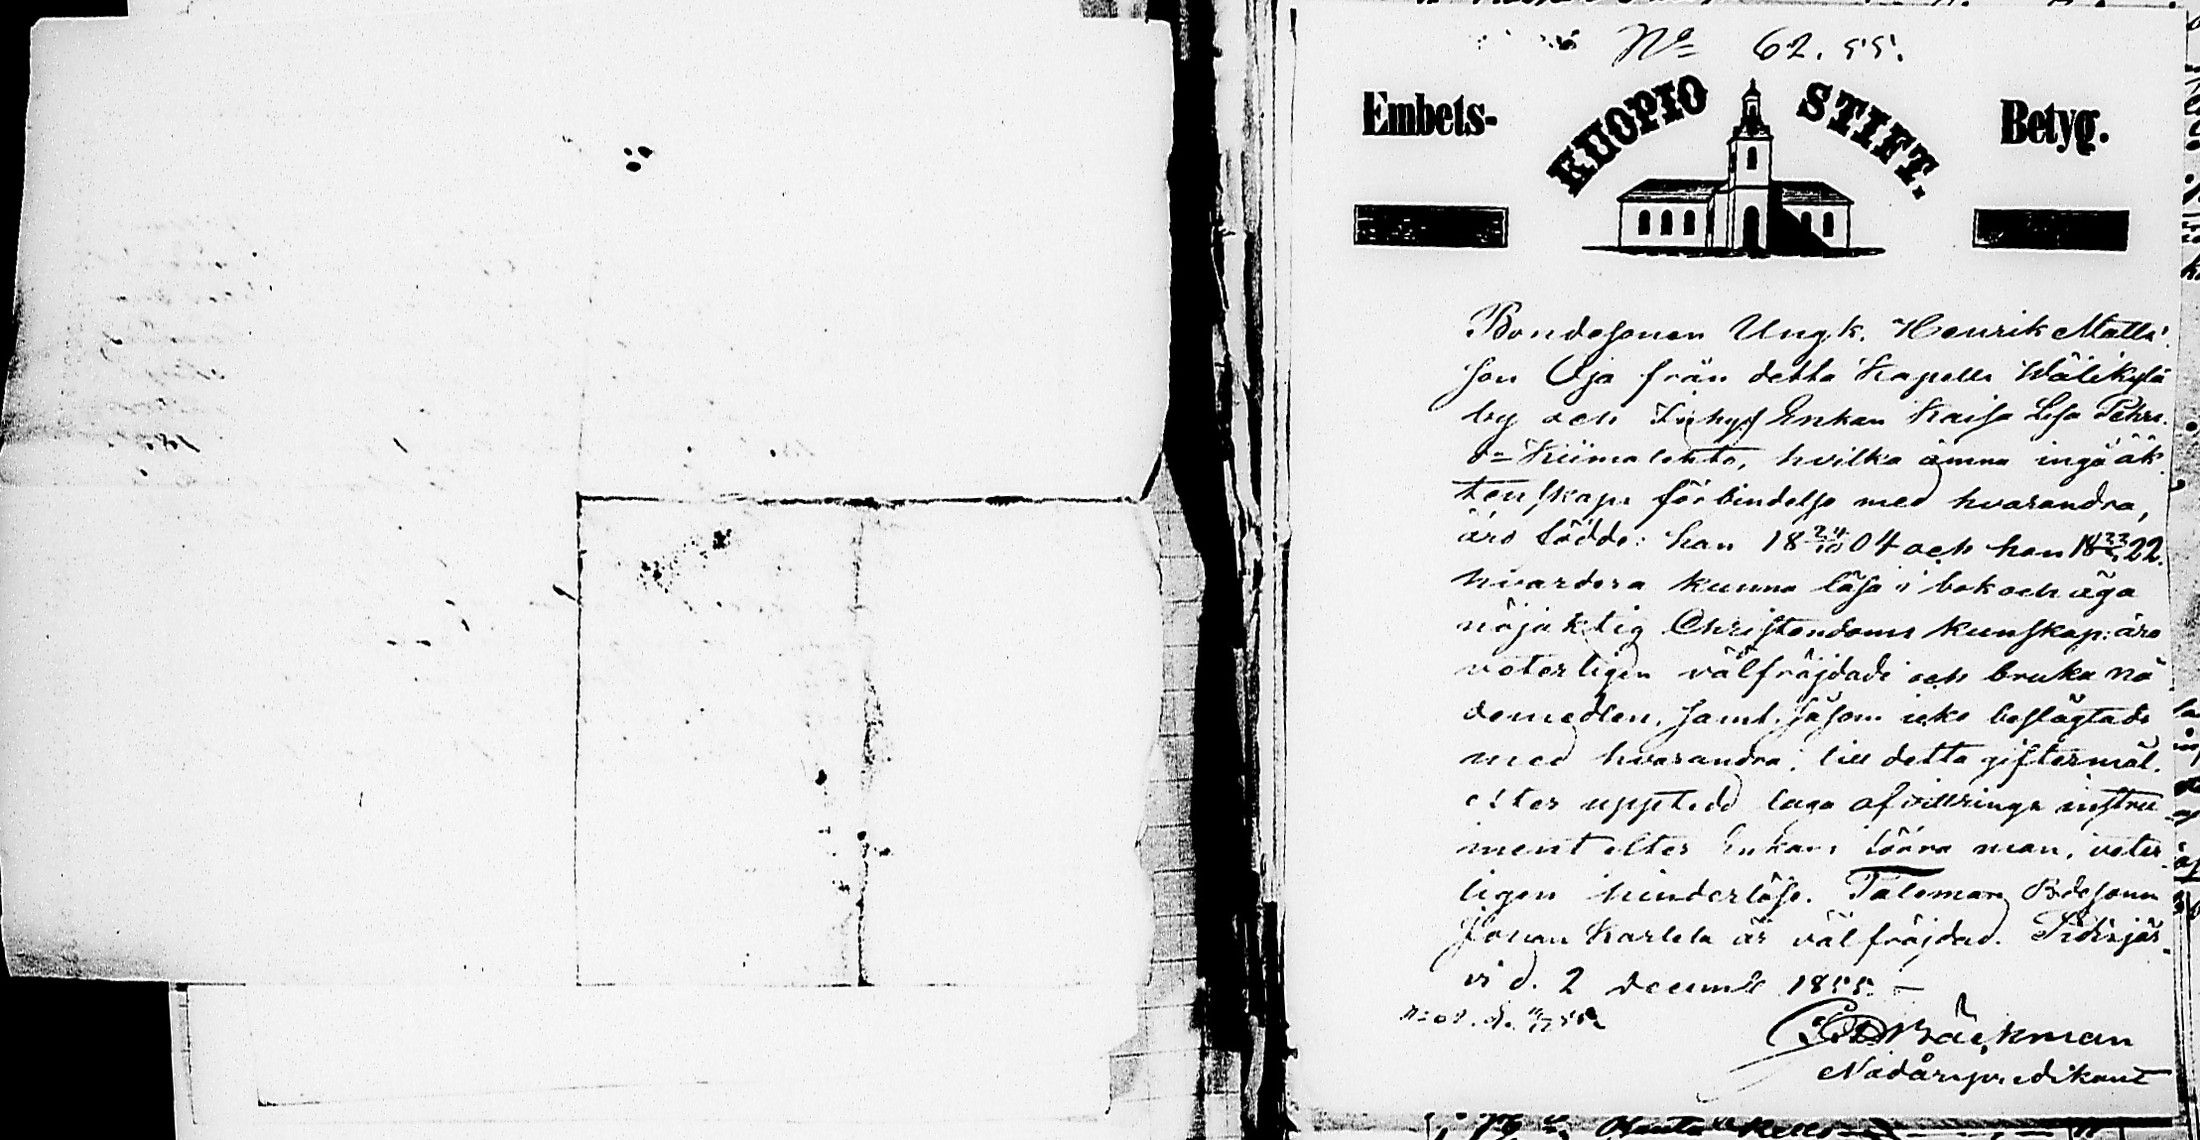 No 62. 55.
Embets- KUOPIO STIFT. Betyg.
Bondesonen Ungk. Henrik Matts
son Oja från detta Kapells Wälikylä
by och Inhys Enkan Kaisa Lisa Pehrs
d= Kiimalehto, hvilka ämna ingå äk
tenskaps förbindelse med hvarandra,
äro födde: han 18 24/10 04 och hon 18 22.
hvardera kunna läsa i bok och äga
nöjaktig Christendoms kunskap: äro
veterligen välfräjdade och bruka nå
demedlen, samt, såsom icke beslägtade
med hvarandra, till detta giftermål,
efter uppted laga afvittrings instru
ment efter Enkans förra man, veter
ligen hinderlöse. Taleman Bdesonen
Johan Karlela är välfräjdad. Pidisjär
vi d. 2 decemb 1855. –
Bäckman
Nådårspredikant